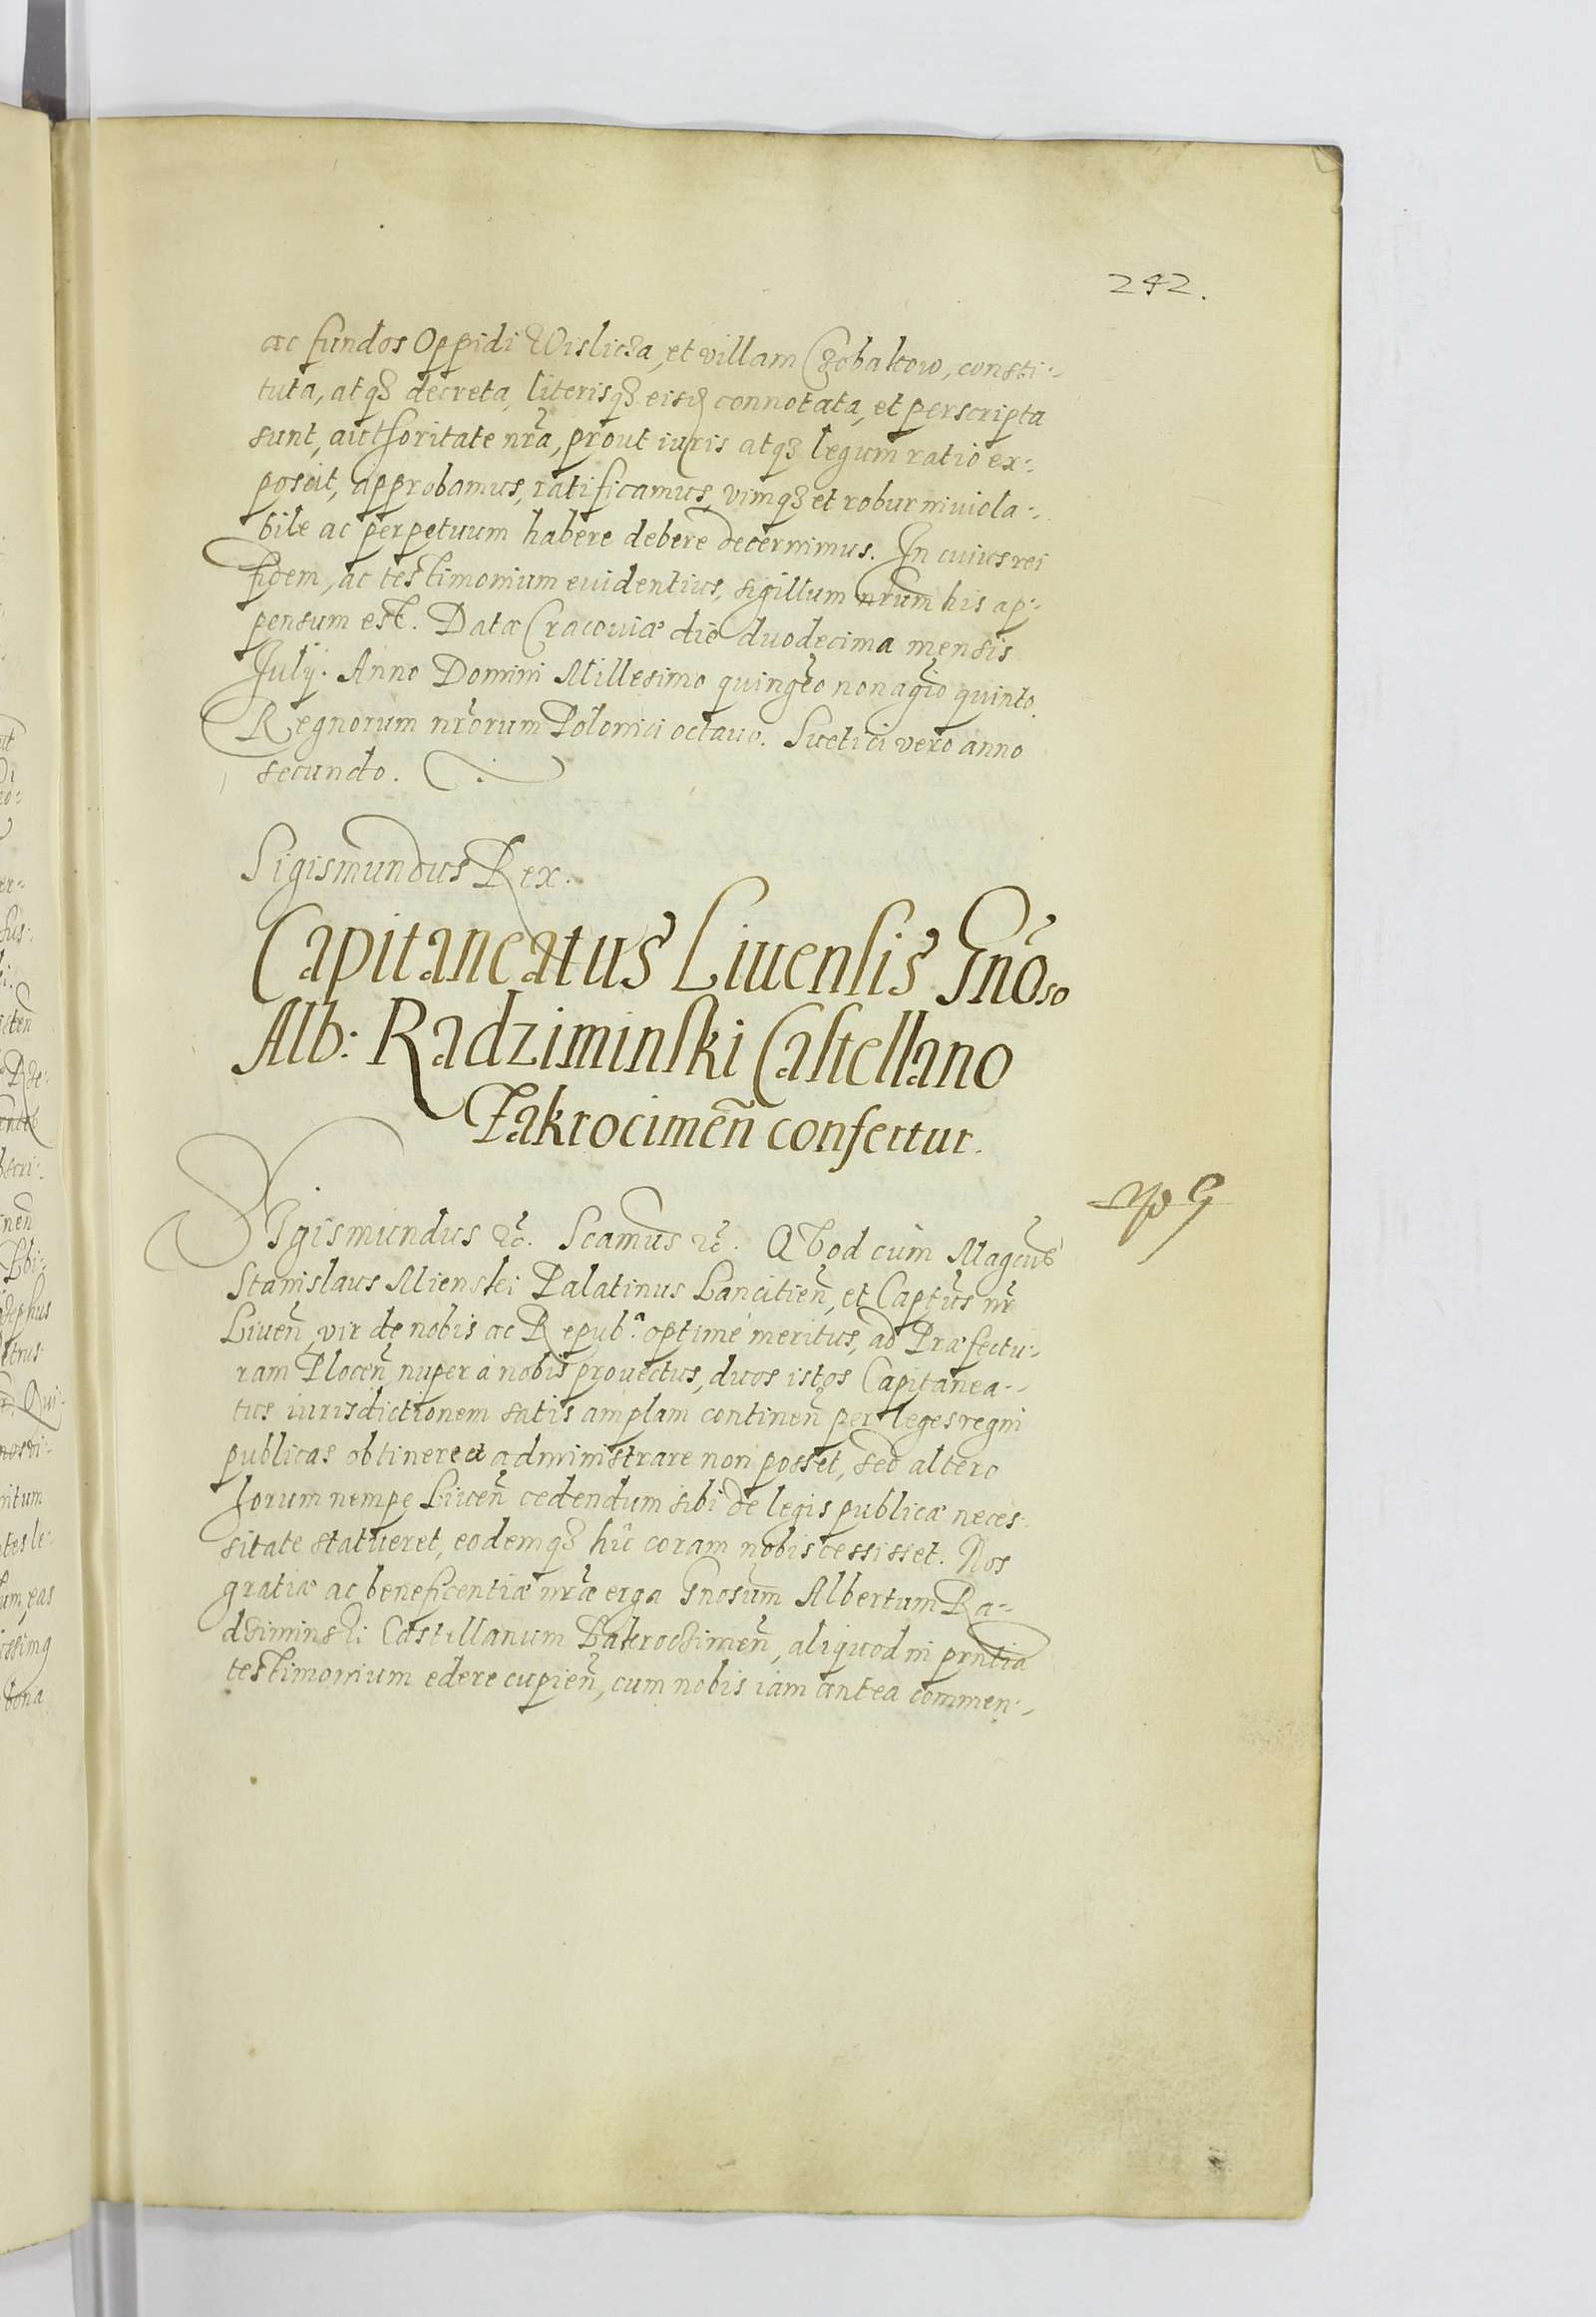 242.
ac fundos Oppidi Wislicza, et villam Czobakow, consti-
tuta, atq₃ decreta, literisq₃ eisd connotata, et perscripta
sunt, authoritate nr̃a, prout iuris atq₃ legum ratio ex-
poscit, approbamus, ratificamus, vimq₃ et robur inuiola-
bile ac perpetuum habere debere decernimus. In cuius rei
fidem, ac testimonium euidentius, sigillum nrum his ap-
pensum est. Datæ Cracouiæ die duodecima mensis
Julÿ. Anno Domini Millesimo quingẽo nonagio quinto
Regnorum nr̃orum Polonici octauo. Suetici vero anno
secundo.
Sigismundus Rex.
Capitaneatus Liuensis Gñoso
Alb: Radziminski Castellano
Zakrocimeñ confertur.
Sigismundus &c̃. Scamus &c̃. QVod cum Magcus
Stanislaus Minski Palatinus Lancitieñ, et Captus nr̃
Liueñ, vir de nobis ac Repub.ᵃ optime meritus, ad Præfectu-
ram Ploceñ nuper à nobis prouectus, duos istos Capitanea-
tus iurisdictionem satis amplam contineñ per leges regni
publicas obtinere et administrare non posset, sed altero
horum nempe Liueñ cedendum sibi de legis publicæ neces-
sitate statueret, eodemq₃ hic coram nobis cessisset. Nos
gratiæ ac beneficentiæ nr̃æ erga Gnosum Albertum Ra-
dziminski Castellanum Zakroczimeñ, aliquod in prñtia
testimonium edere cupieñ, cum nobis iam antea commen-